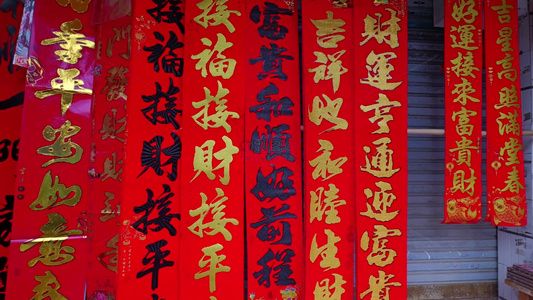 吉星高照滿堂春
好運接來富貴財
財運亨通迎富貴
吉祥和睦生財
富貴和順好前程
接福接財接平
接福接財接平
門發財
季平安如意春